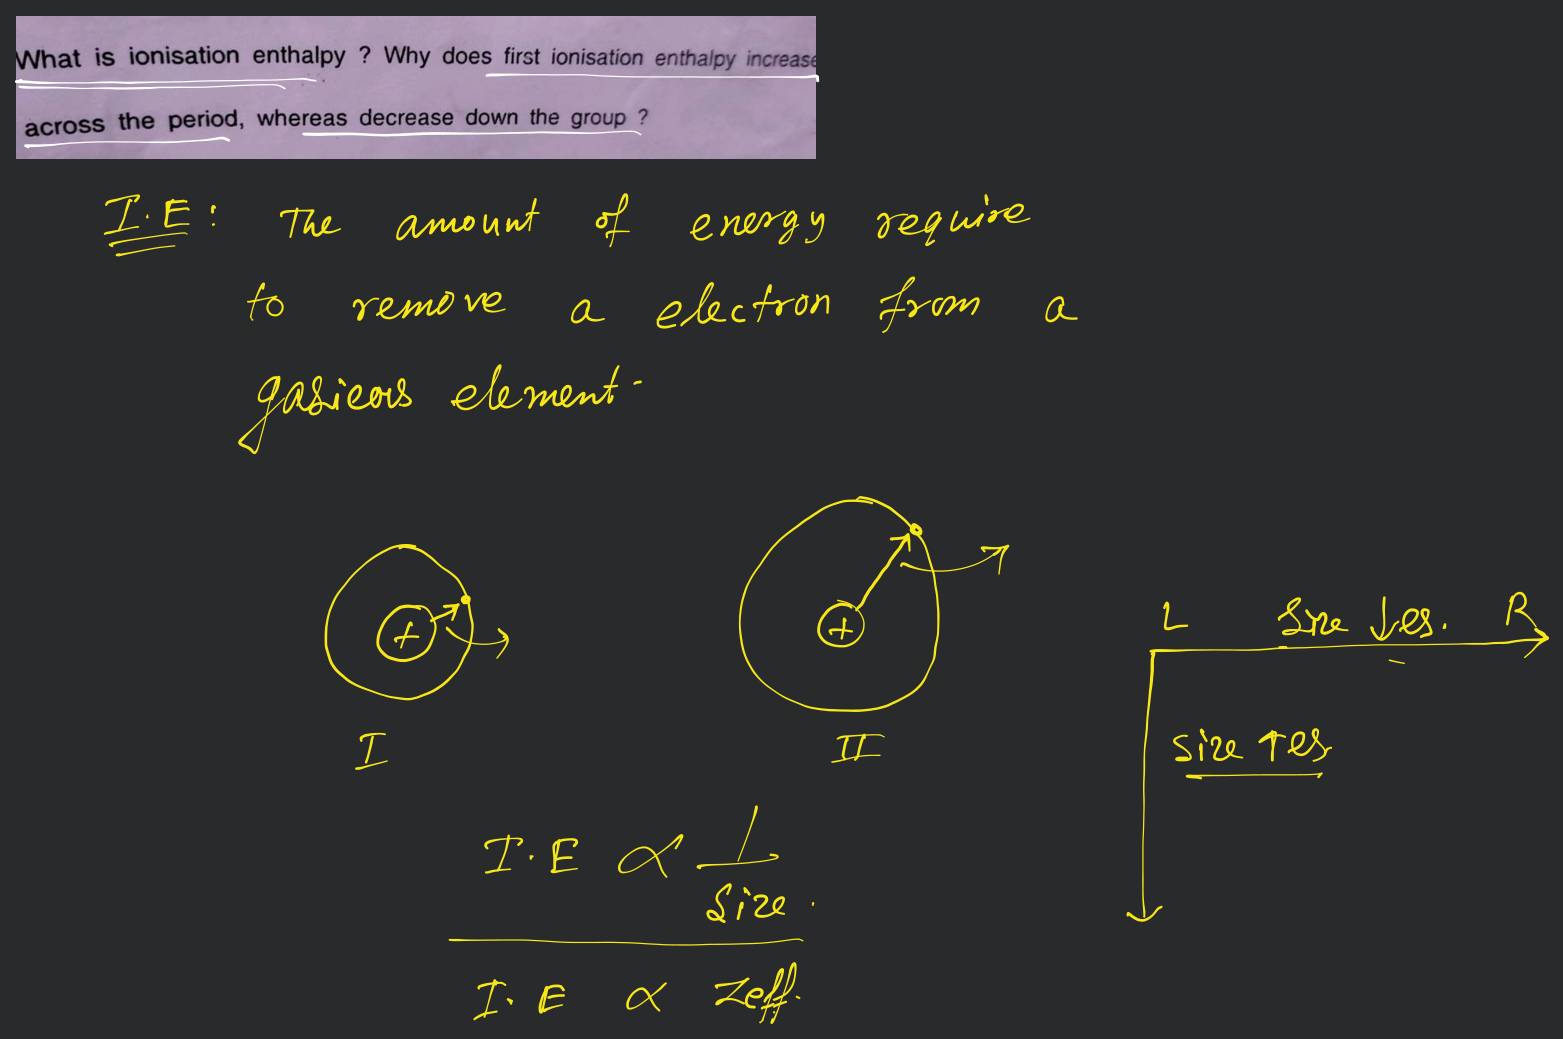 What is ionisation enthalpy ? Why does first ionisation enthalpy increase
across the period, whereas decrease down the group ?
I.E : The amount of energy require
to remove a electron from a
gasieous element.
+
+
I
II
L Size ↓es. R
Size ↑es
I.E ∝ 1
Size.
I.E ∝ Zeff.